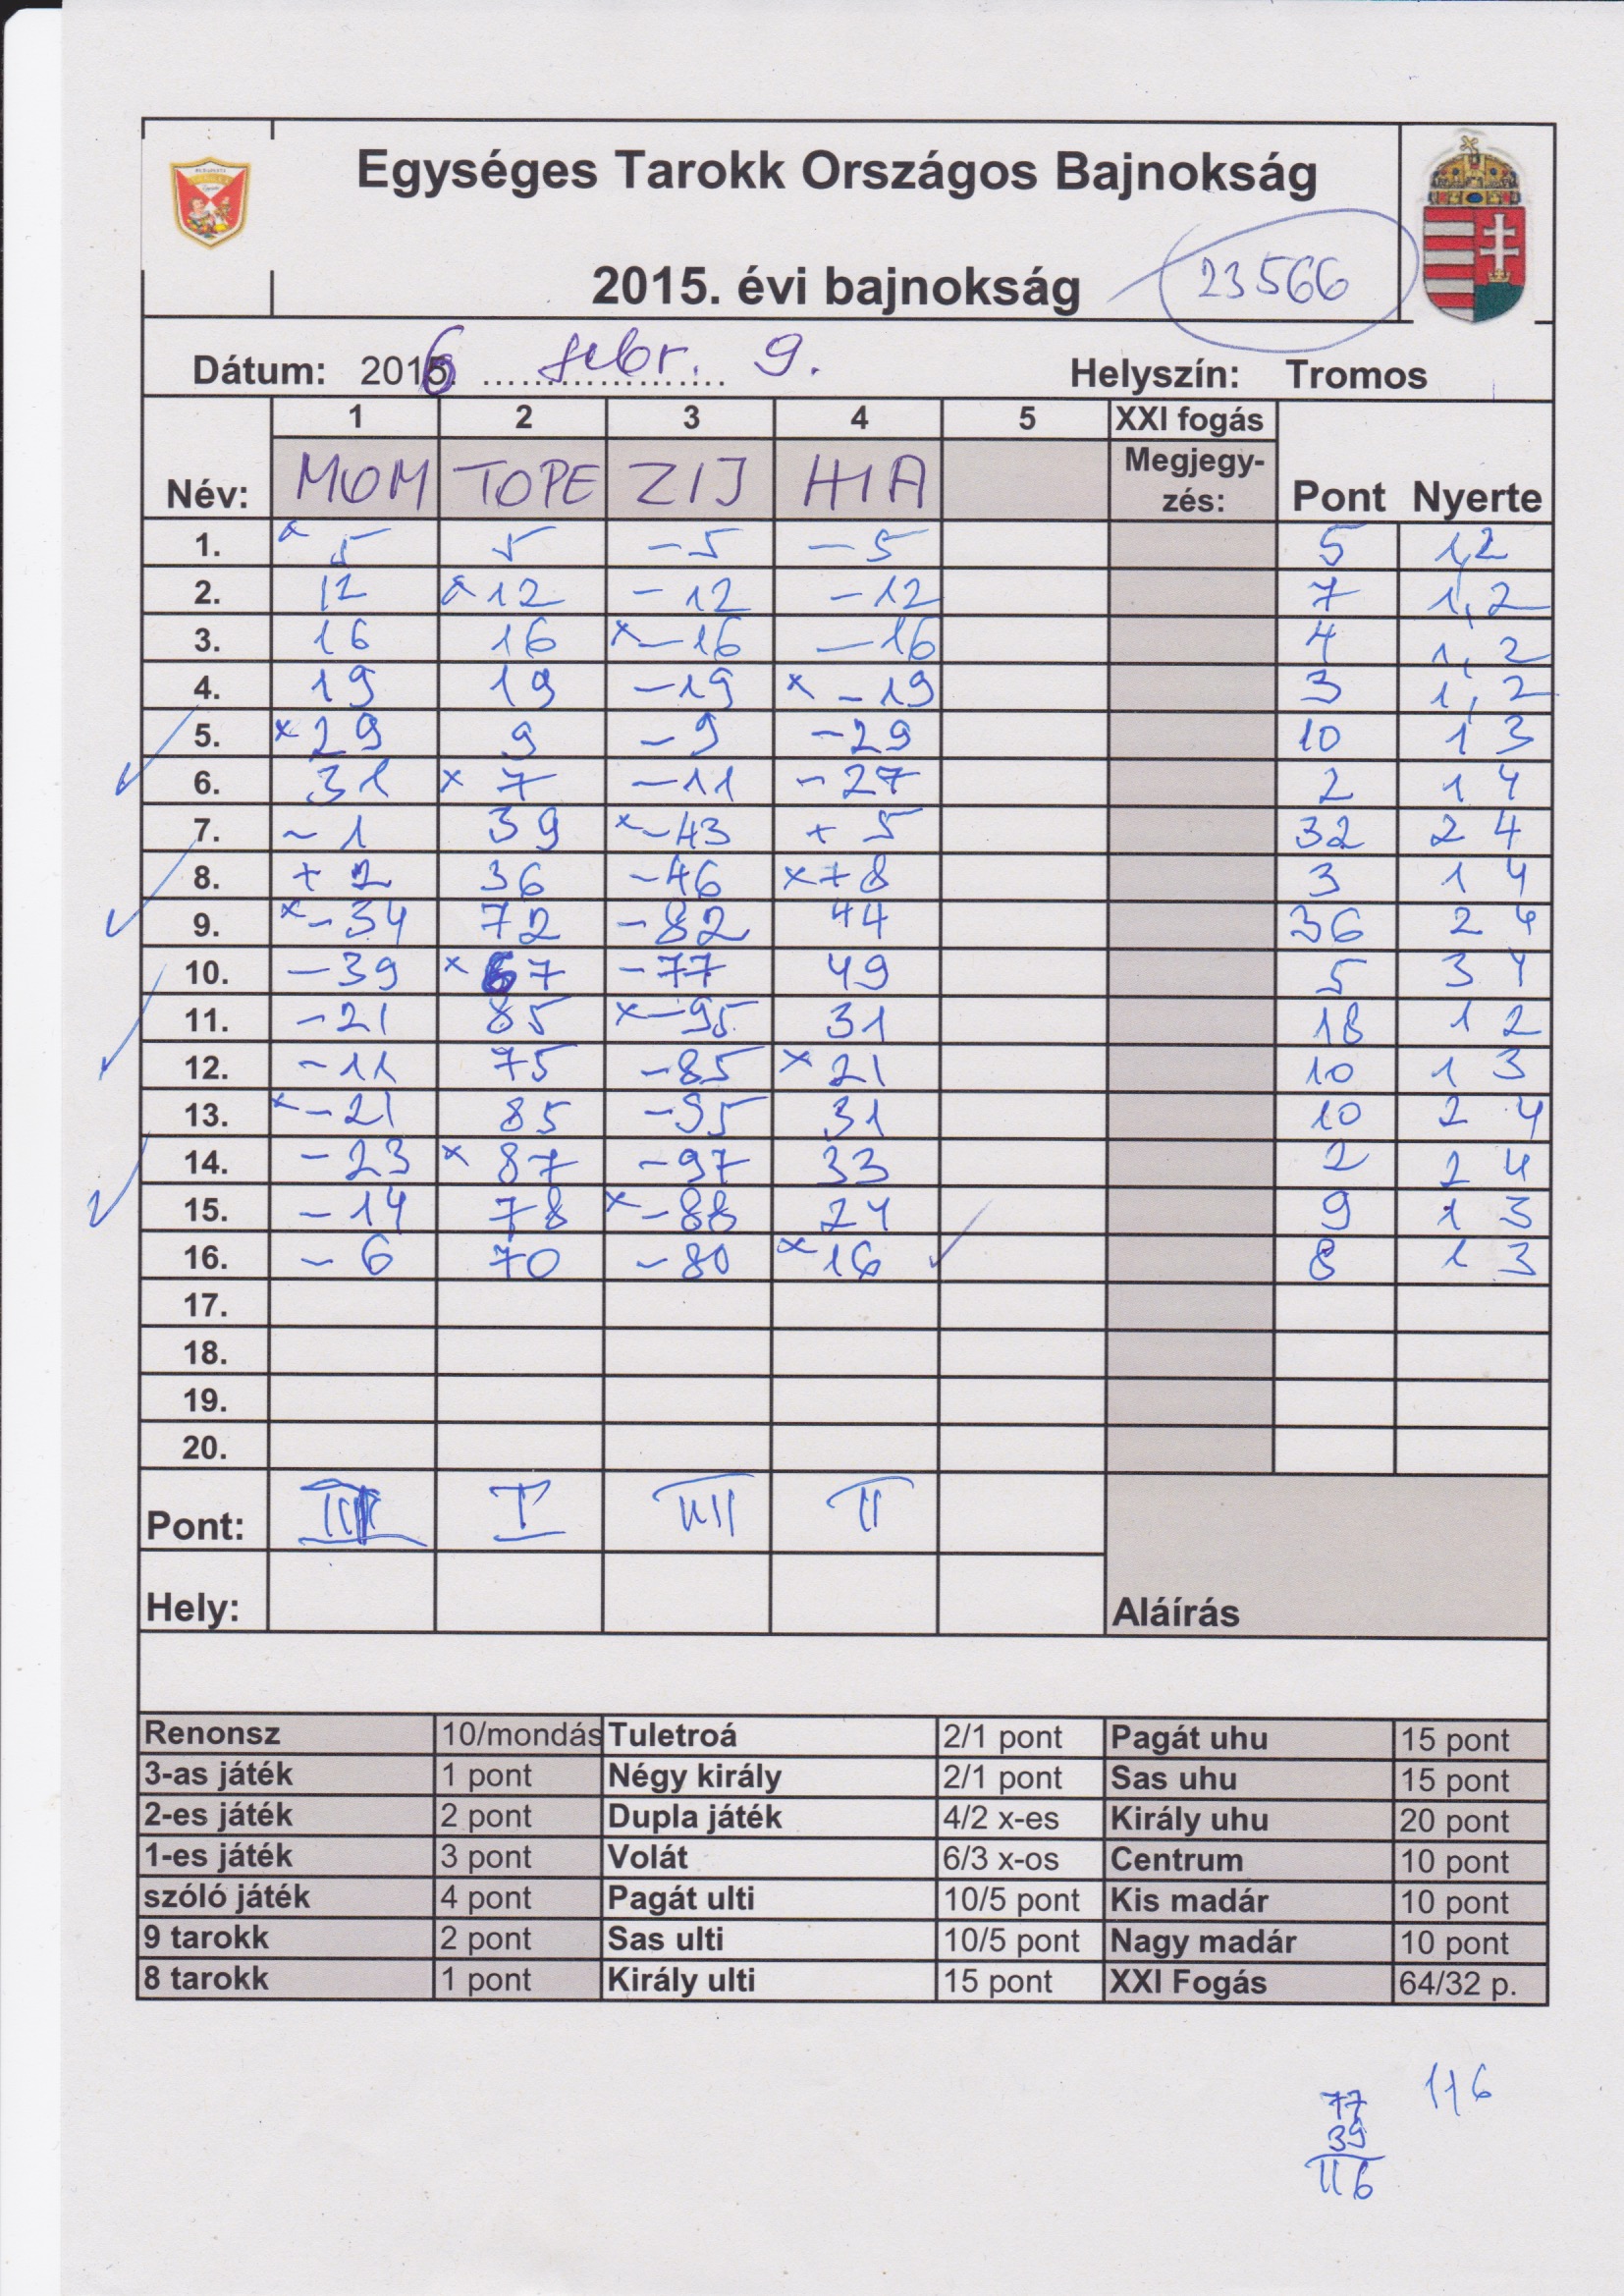 Egységes Tarokk Országos Bajnokság
2015. évi bajnokság 23566
Dátum: 2016. febr. 9. Helyszín: Tromos
1 2 3 4 5 XXI fogás
Név: MOM TOPE ZIJ HIA Megjegy-zés: Pont Nyerte
1. x 5 5 -5 -5 5 1,2
2. 12 x 12 -12 -12 7 1,2
3. 16 16 x -16 -16 4 1,2
4. 19 19 -19 x -19 3 1,2
5. x 29 9 -9 -29 10 1 3
6. 31 x 7 -11 -27 2 1 4
7. -1 39 x -43 + 5 32 2 4
8. + 2 36 -46 x +8 3 1 4
9. x -34 72 -82 44 36 2 4
10. -39 x 67 -77 49 5 3 4
11. -21 85 x -95 31 18 1 2
12. -11 75 -85 x 21 10 1 3
13. x -21 85 -95 31 10 2 4
14. -23 x 87 -97 33 2 2 4
15. -14 78 x -88 24 9 1 3
16. -6 70 -80 x 16 8 1 3
17.
18.
19.
20.
Pont: III I IIII II
Hely: Aláírás
Renonsz 10/mondás Tuletroá 2/1 pont Pagát uhu 15 pont
3-as játék 1 pont Négy király 2/1 pont Sas uhu 15 pont
2-es játék 2 pont Dupla játék 4/2 x-es Király uhu 20 pont
1-es játék 3 pont Volát 6/3 x-os Centrum 10 pont
szóló játék 4 pont Pagát ulti 10/5 pont Kis madár 10 pont
9 tarokk 2 pont Sas ulti 10/5 pont Nagy madár 10 pont
8 tarokk 1 pont Király ulti 15 pont XXI Fogás 64/32 p.
77 116
39
116